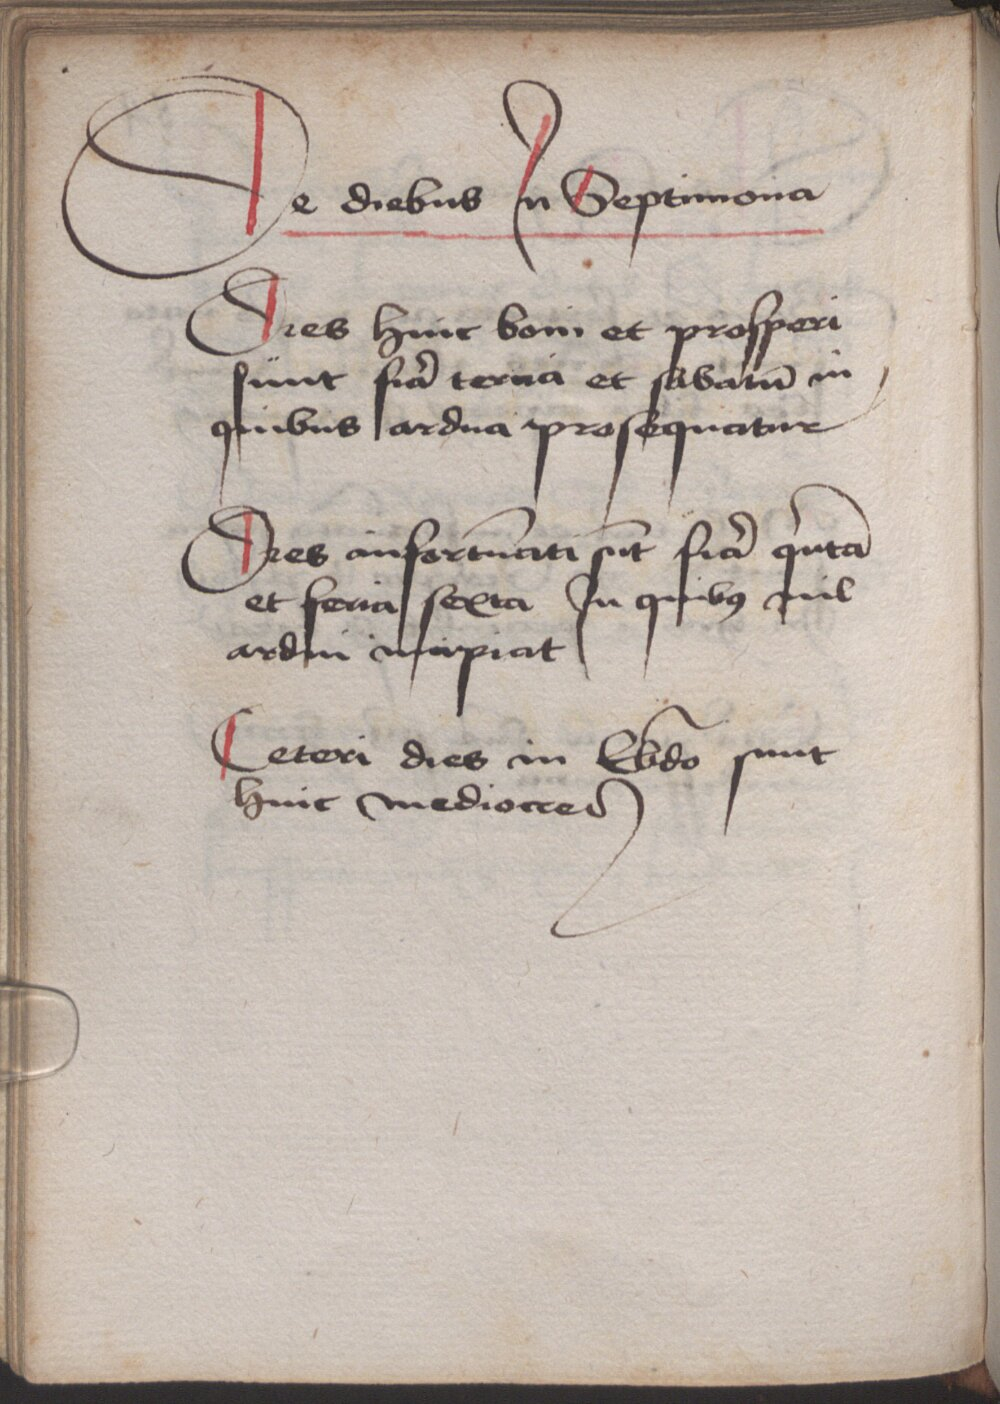 De diebus In Septimona
Dies huic boni et prosperi
sunt fiã tercia et sabatũ in
quibus ardua prosequatur
Dies infortũati sũt fiã quĩtã
et feria sexta In quibꝰ nil
ardui incipiat
Ceteri dies in Ebdõ sunt
huic mediocres